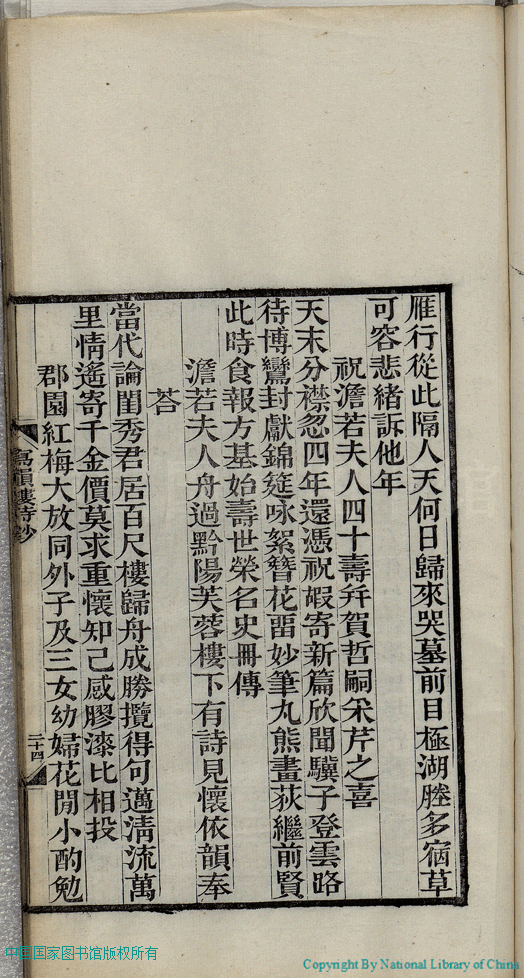 雁行從此隔人天何日歸來哭墓前目極湖塍多宿草
可容悲緒訴他年
祝澹若夫人四十壽幷賀哲嗣采芹之喜
天末分襟忽四年還憑祝嘏寄新篇欣聞驥子登雲路
待博鸞封獻錦筵咏絮簪花畱妙筆丸熊畫荻繼前賢
此時食報方基始壽世榮名史冊傳
澹若夫人舟過黔陽芙蓉樓下有詩見懷依韻奉
荅
當代論閨秀君居百尺樓歸舟成勝攬得句邁淸流萬
里情遙寄千金價莫求重懷知己感膠漆比相投
郡園紅梅大放同外子及三女幼婦花閒小酌勉
韻樓詩鈔
三十四
中国国家图书馆版权所有
Copyright By National Library of China